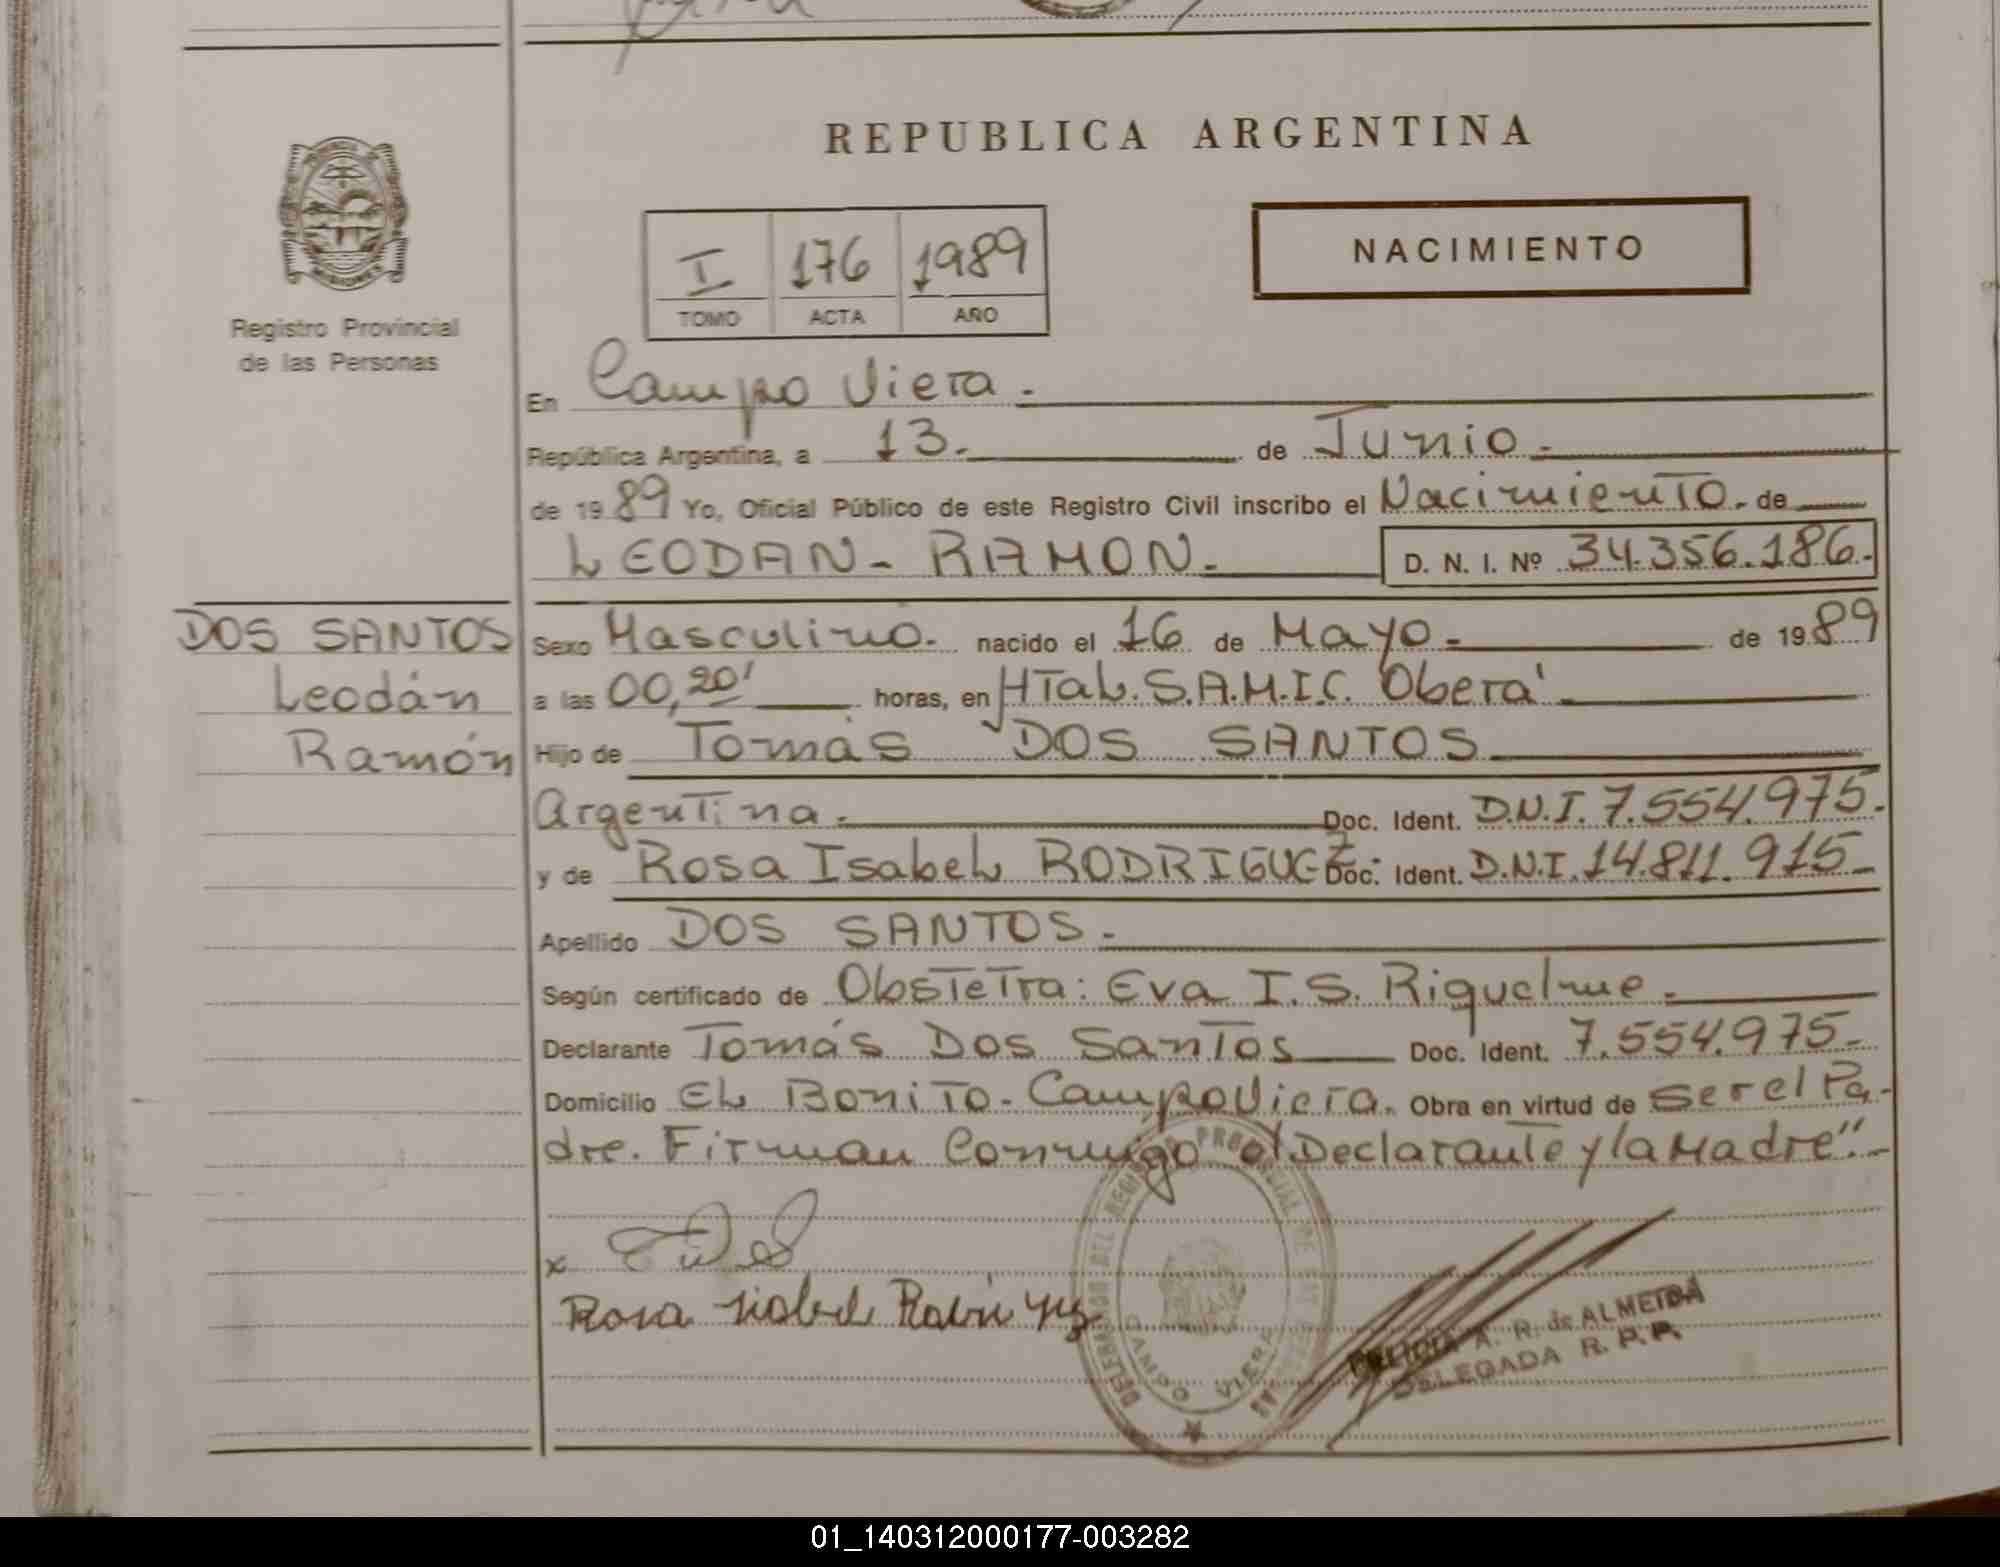 REPUBLICA ARGENTINA
NACIMIENTO
I 176 1989
TOMO ACTA AÑO
Registro Provincial
de las Personas
En Campo Viera.
República Argentina, a 13. de Junio.
de 1989 Yo, Oficial Público de este Registro Civil inscribo el Nacimiento. de
LEODAN - RAMON. D. N. I. Nº 34.356.186.-
DOS SANTOS
Leodán
Ramón
Sexo Masculino. nacido el 16 de Mayo. de 1989
a las 00,20' horas, en HTal. S.A.M.I.C. Oberá
Hijo de Tomás DOS SANTOS
Argentina. Doc. Ident. D.N.I. 7.554.975.
y de Rosa Isabel RODRIGUEZ Doc. Ident. D.N.I. 14.811.915-
Apellido DOS SANTOS.
Según certificado de Obstetra: Eva I. S. Riquelme.
Declarante Tomás Dos Santos Doc. Ident. 7.554.975-
Domicilio El Bonito - Campo Viera. Obra en virtud de ser el Pa-
dre. Firman Conmigo el "Declarante y la Madre".-
x
Rosa Isabel Rodriguez
DELEGACION DEL REGISTRO PROVINCIAL DE LAS
CAMPO VIERA
FELICIA A. R. de ALMEIDA
DELEGADA R. P. P.
01_140312000177-003282